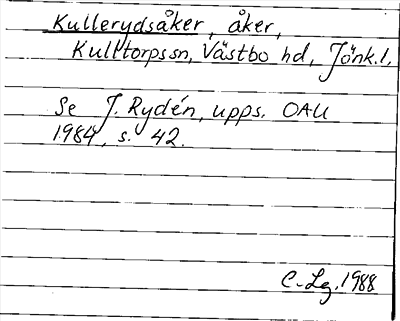 Kullerydsåker, åker,
Kulltorpssn, Västbo hd, Jönk.l.
Se J. Rydén, upps. OAU
1984, s. 42.
C-Lg. 1988